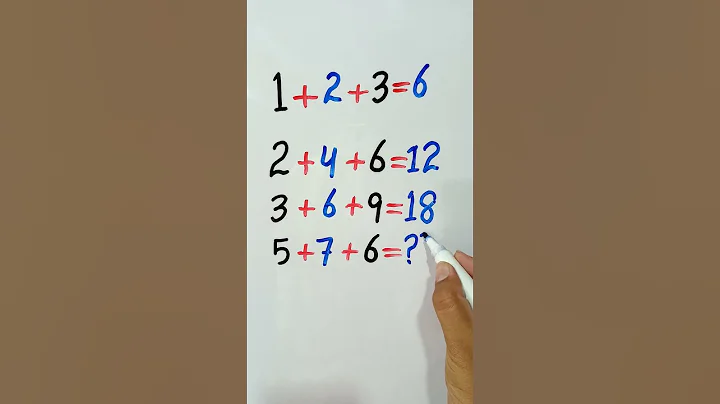 1+2+3=6
2+4+6=12
3+6+9=18
5+7+6=?